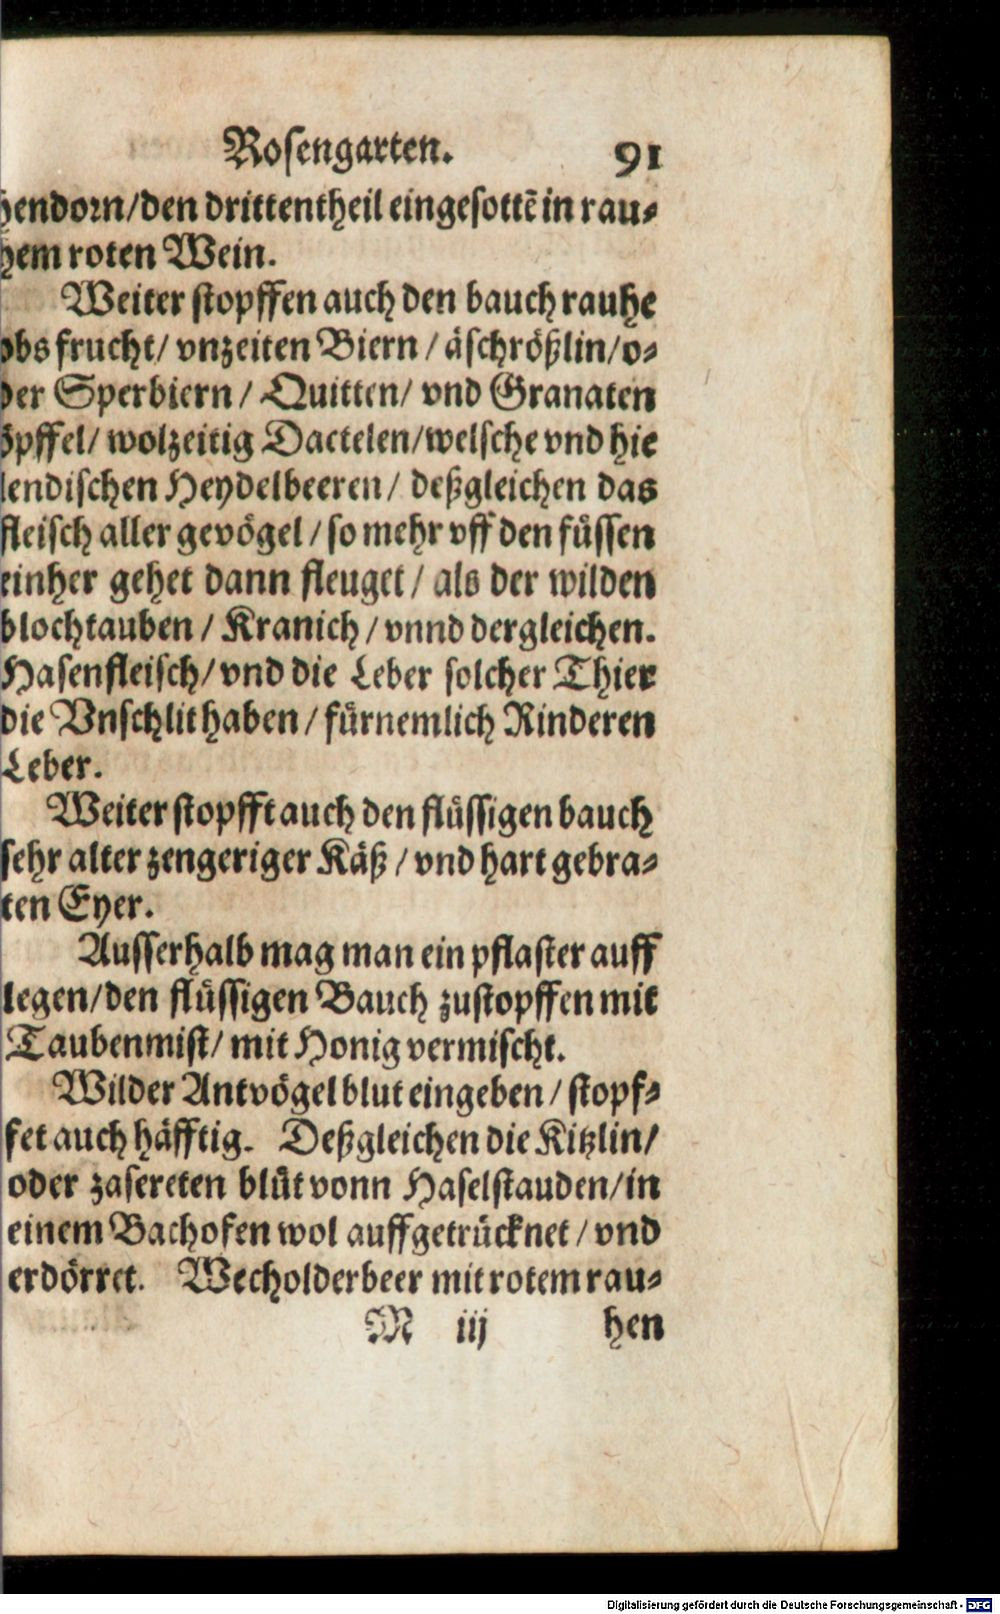 Rosengarten. 91
hendorn/den drittentheil eingesottẽ in rau⸗
hem roten Wein.
Weiter stopffen auch den bauch rauhe
obs frucht/ vnzeiten Biern / äschrößlin/o⸗
der Sperbiern / Quitten/ vnd Granaten
öpffel/ wolzeitig Dactelen/welsche vnd hie
lendischen Heydelbeeren/ deßgleichen das
fleisch aller gevögel / so mehr vff den füssen
einher gehet dann fleuget / als der wilden
blochtauben / Kranich / vnnd dergleichen.
Hasenfleisch/ vnd die Leber solcher Thier
die Vnschlit haben / fürnemlich Rinderen
Leber.
Weiter stopfft auch den flüssigen bauch
sehr alter zengeriger Käß / vnd hart gebra⸗
ten Eyer.
Ausserhalb mag man ein pflaster auff
legen/den flüssigen Bauch zustopffen mit
Taubenmist/ mit Honig vermischt.
Wilder Antvögel blut eingeben / stopf⸗
fet auch häfftig. Deßgleichen die Kitzlin/
oder zasereten blüt vonn Haselstauden/in
einem Bachofen wol auffgetrücknet / vnd
erdörret. Wecholderbeer mit rotem rau⸗
M iij hen
Digitalisierung gefördert durch die Deutsche Forschungsgemeinschaft - DFG